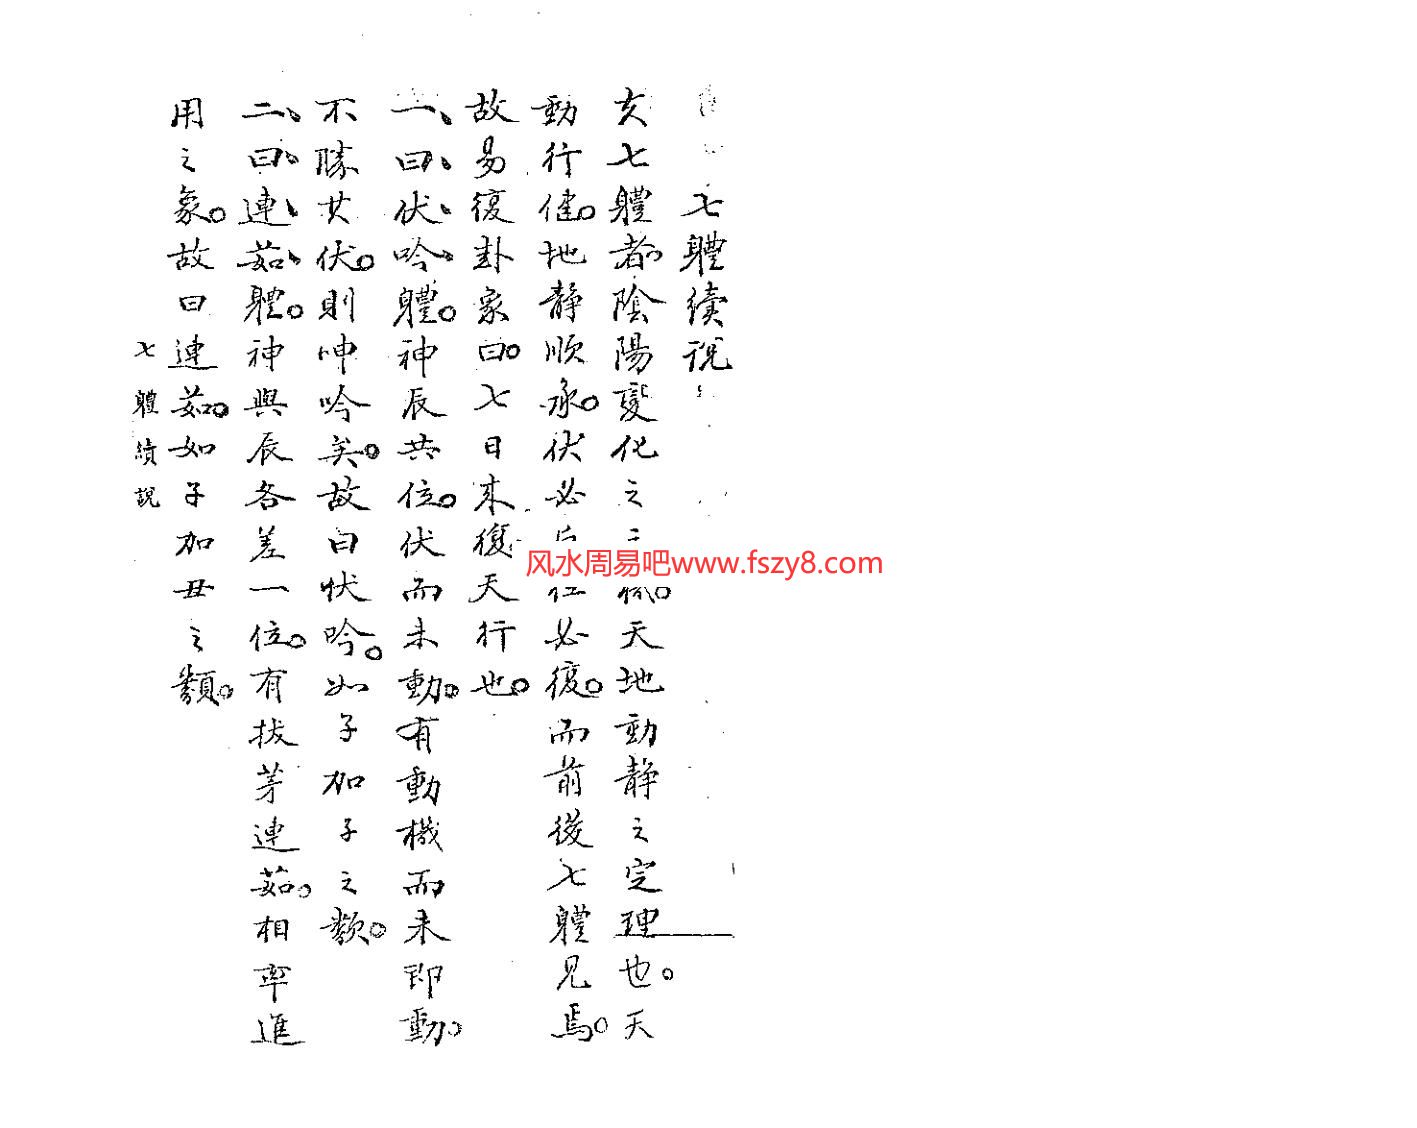 七體續説
夫七體者陰陽變化之二機天地動静之定理也。天
動行健。地静順承。伏必反往必復。而前後七體見焉。
故易復卦象曰。七日来復天行也。
一、曰、伏、吟、體。神辰共位。伏而未動。有動機而未即動。
不勝其伏。則呻吟矣。故曰伏吟。如子加子之類。
二、曰、連、茹、體。神與辰各差一位。有拔茅連茹。相率進
用之象。故曰連茹。如子加丑之類。
七體續説
风水周易吧www.fszy8.com